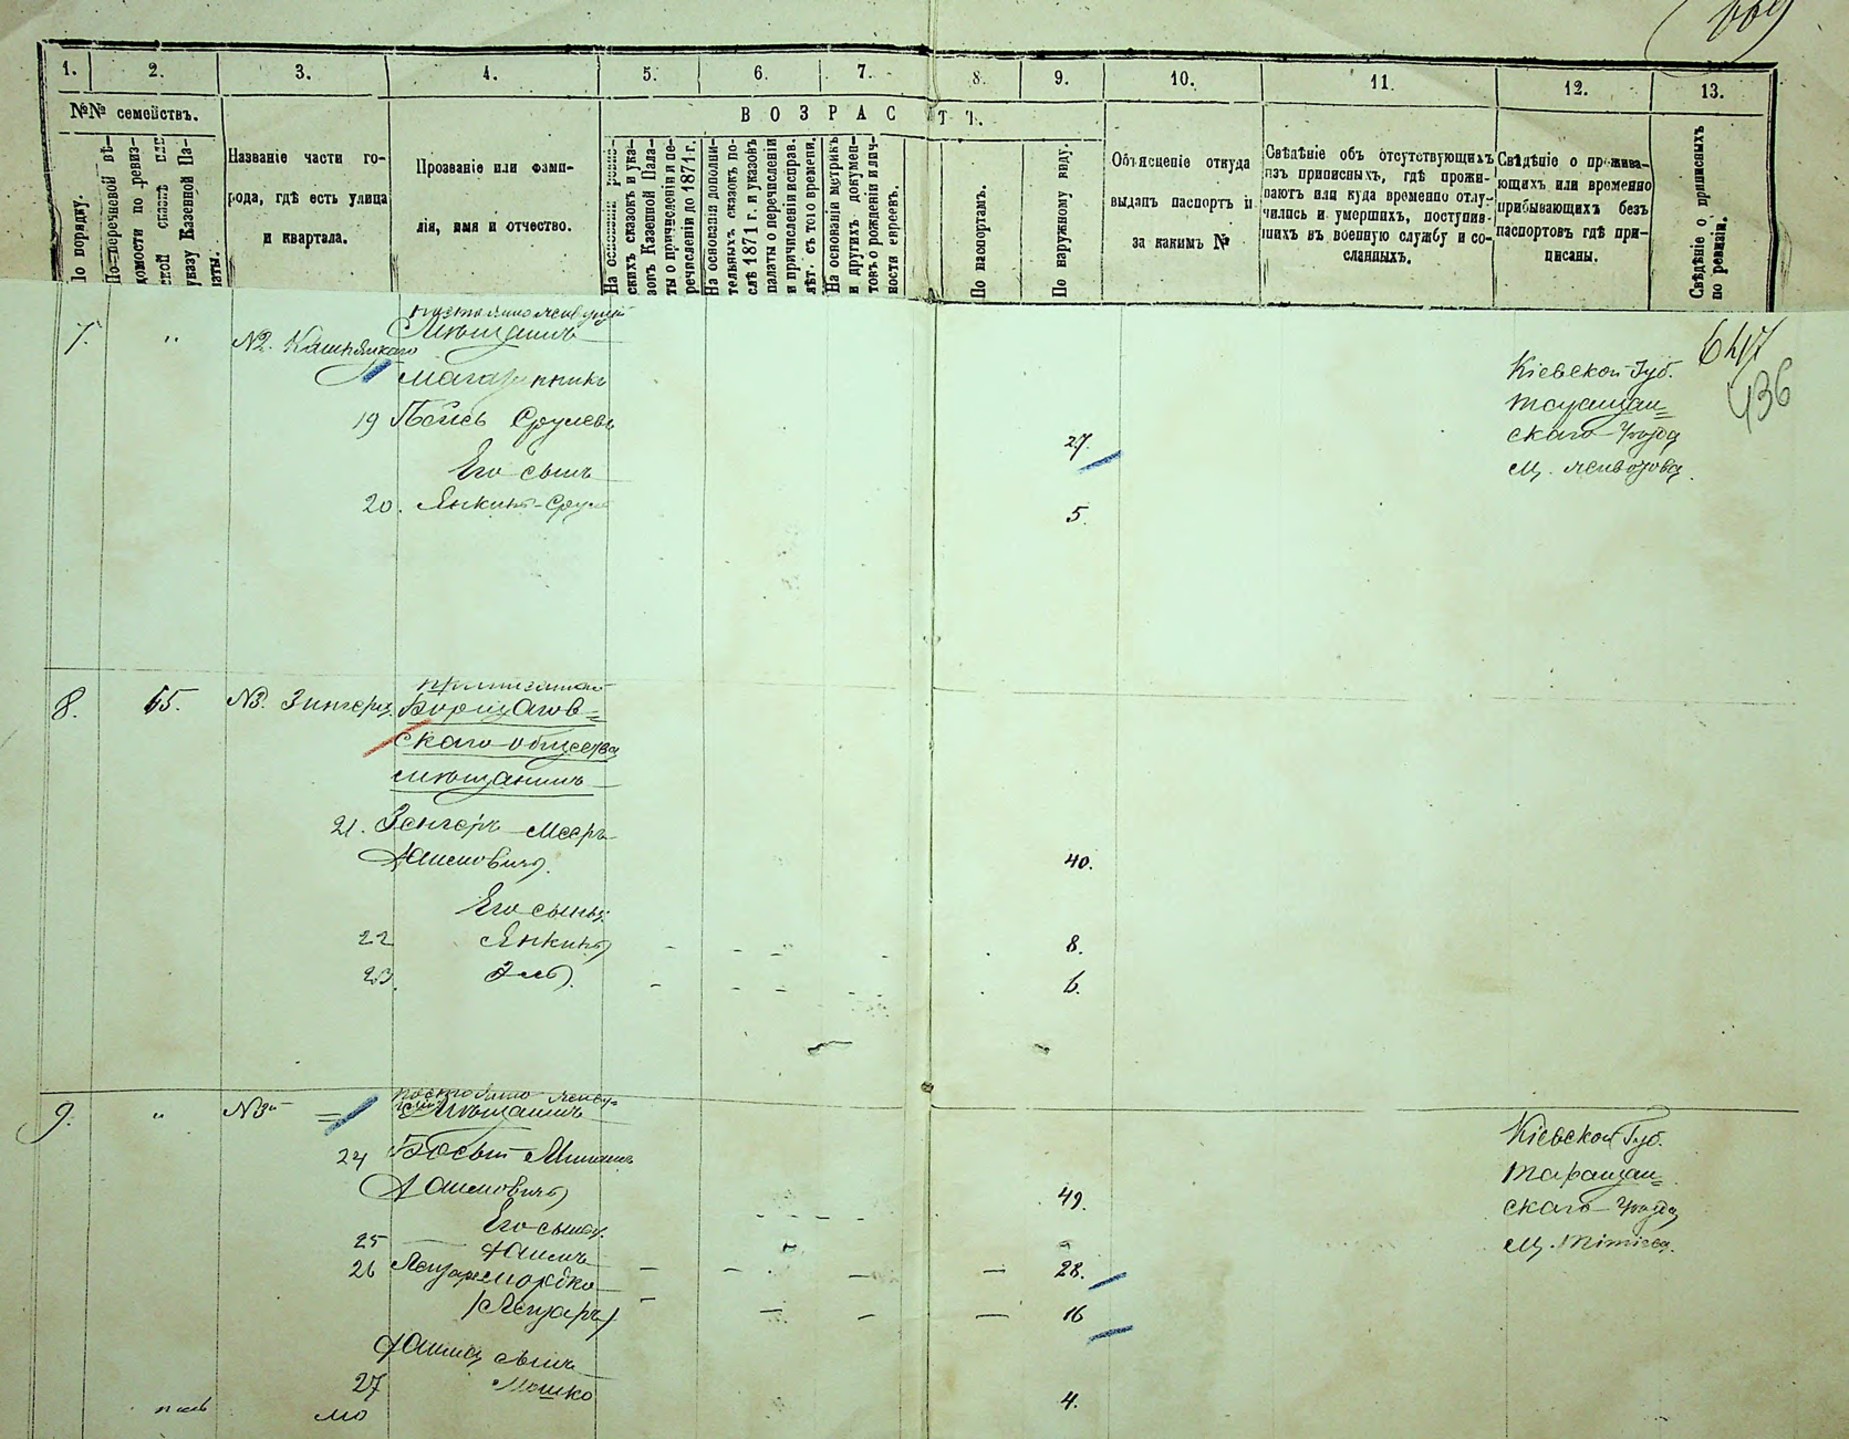 1. 2. 3. 4. 5. 6. 7. 8. 9. 10. 11. 12. 13.
№№ семействъ.
ВОЗРАСТЪ.
По порядку.
По перечневой вѣ-
домости по ревиз-
ской сказкѣ или
указу Казенной Па-
латы.
Названіе части го-
рода, гдѣ есть улица
и квартала.
Прозваніе или фами-
лія, имя и отчество.
На основаніи ревиз-
скихъ сказокъ и ука-
зовъ Казенной Пала-
ты о причисленіи и пе-
речисленіи до 1871 г.
На основаніи дополни-
тельныхъ сказокъ по-
слѣ 1871 г. и указовъ
палаты о перечисленіи
и причисленіи исправ.
лѣт. съ того времени.
На основаніи метрикъ
и другихъ докумен-
товъ о рожденіи и лич-
ности евреевъ.
По паспортамъ.
По наружному виду.
Объясненіе откуда
выданъ паспортъ и
за какимъ №
Свѣдѣніе объ отсутствующихъ
изъ приписныхъ, гдѣ прожи-
ваютъ или куда временно отлу-
чились и умершихъ, поступив-
шихъ въ военную службу и со-
сланныхъ.
Свѣдѣніе о прожива-
ющихъ или временно
прибывающихъ безъ
паспортовъ гдѣ при-
писаны.
Свѣдѣніе о приписныхъ
по ревизіи.
7. " №2.
Мѣщанинъ
19 Срулевъ 27.
Его сынъ
20. Янкель-Сруль 5.
Кіевской Губ.
Таращан=
скаго Уѣзда
м.
436
8. 65. №3. Зингера
Борщагов=
скаго общества
мѣщанинъ
21. Зенгеръ Мееръ
Хаимовичъ. 40.
Его сынья:
22 Янкель 8.
23. 6.
9. " №3
Мѣщанинъ
24
Хаимовичъ 49.
Его сынья.
25 Хаимъ 28.
26 Лейзаръ Мордко
(Лейзаръ) 16
Хаима сынъ
27 Мошко 4.
Кіевской Губ.
Таращан=
скаго Уѣзда
м. Тетіева.